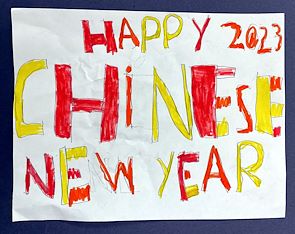 HAPPY 2023
CHiNESE
NEW YEAR